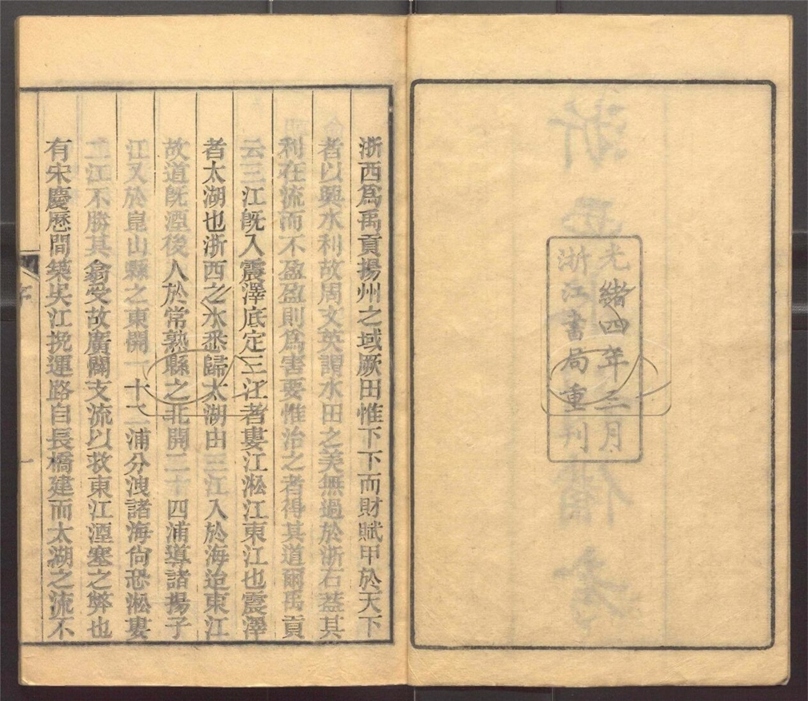 光緒四年三月
浙江書局重刊
浙西爲禹貢揚州之域厥田惟下下而財賦甲於天下
者以興水利故周文英謂水田之美無過於浙右葢其
利在流而不盈盈則爲害要惟治之者得其道爾禹貢
云三江旣入震澤底定三江者婁江淞江東江也震澤
者太湖也浙西之水悉歸太湖由三江入於海迨東江
故道旣湮後人於常熟縣之北開二十四浦導諸揚子
江又於崑山縣之東開一十二浦分洩諸海尙恐淞婁
二江不勝其翕受故廣闢支流以救東江湮塞之弊也
有宋慶歷間築吳江挽運路自長橋建而太湖之流不